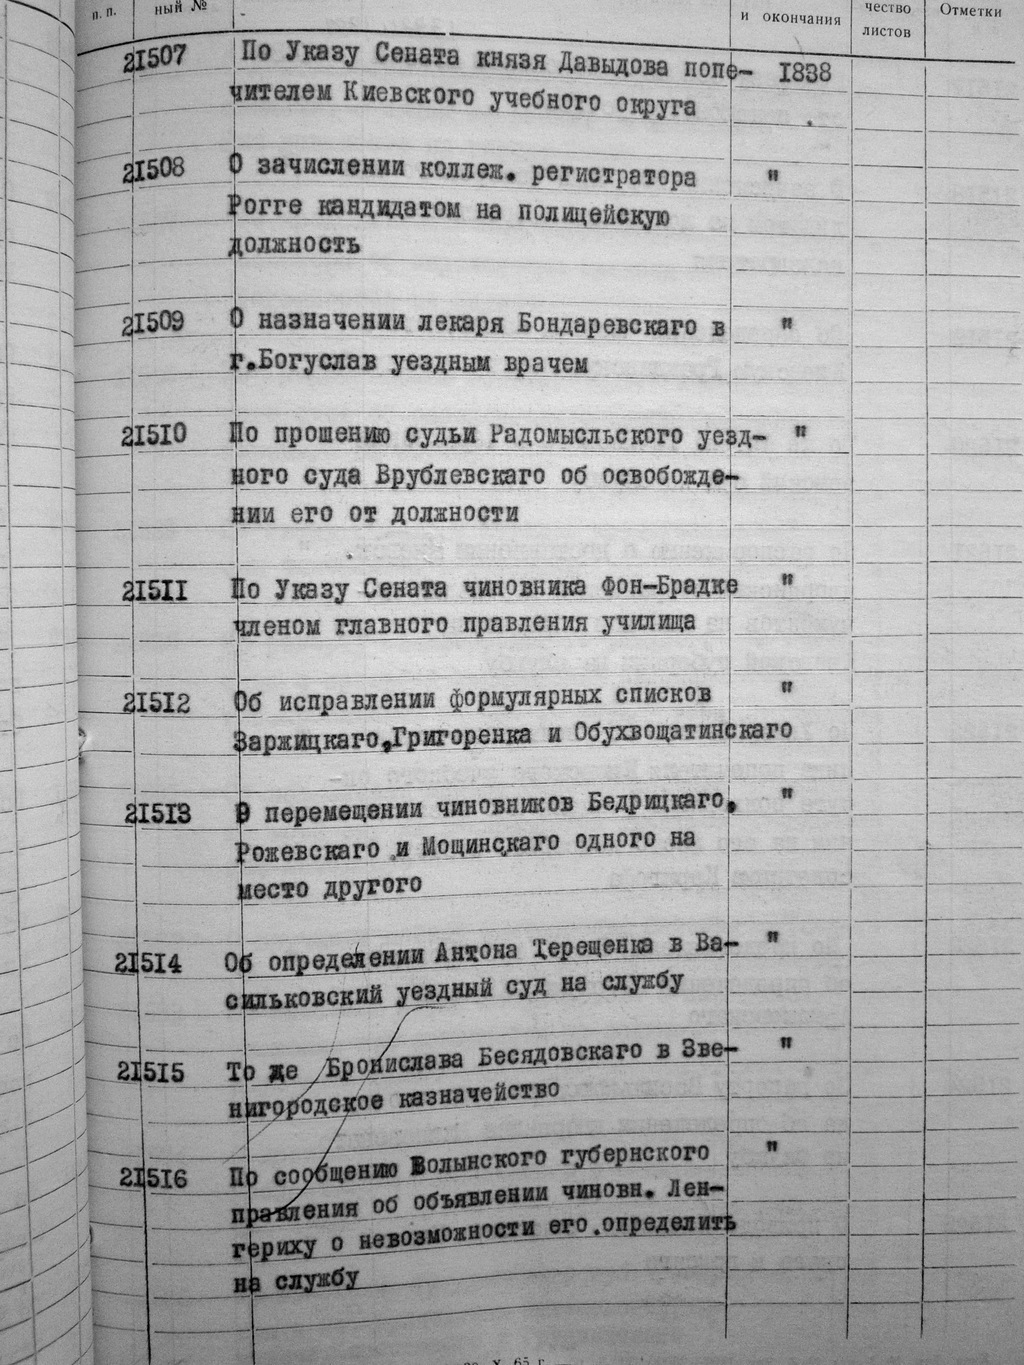 п. п.
ный №
и окончания
чество
листов
Отметки
21507 По Указу Сената князя Давыдова попе- 1838
чителем Киевского учебного округа
21508 О зачислении коллеж. регистратора "
Рогге кандидатом на полицейскую
должность
21509 О назначении лекаря Бондаревскаго в "
г.Богуслав уездным врачем
21510 По прошению судьи Радомысльского уезд- "
ного суда Врублевскаго об освобожде-
нии его от должности
21511 По Указу Сената чиновника Фон-Брадке "
членом главного правления училища
21512 Об исправлении формулярных списков "
Заржицкаго,Григоренка и Обухвощатинскаго
21513 О перемещении чиновников Бедрицкаго, "
Рожевскаго и Мощинскаго одного на
место другого
21514 Об определении Антона Терещенка в Ва- "
сильковский уездный суд на службу
21515 То же Бронислава Бесядовскаго в Зве- "
нигородское казначейство
21516 По сообщению Волынского губернского "
правления об объявлении чиновн. Лен-
гериху о невозможности его определить
на службу
X 65 г